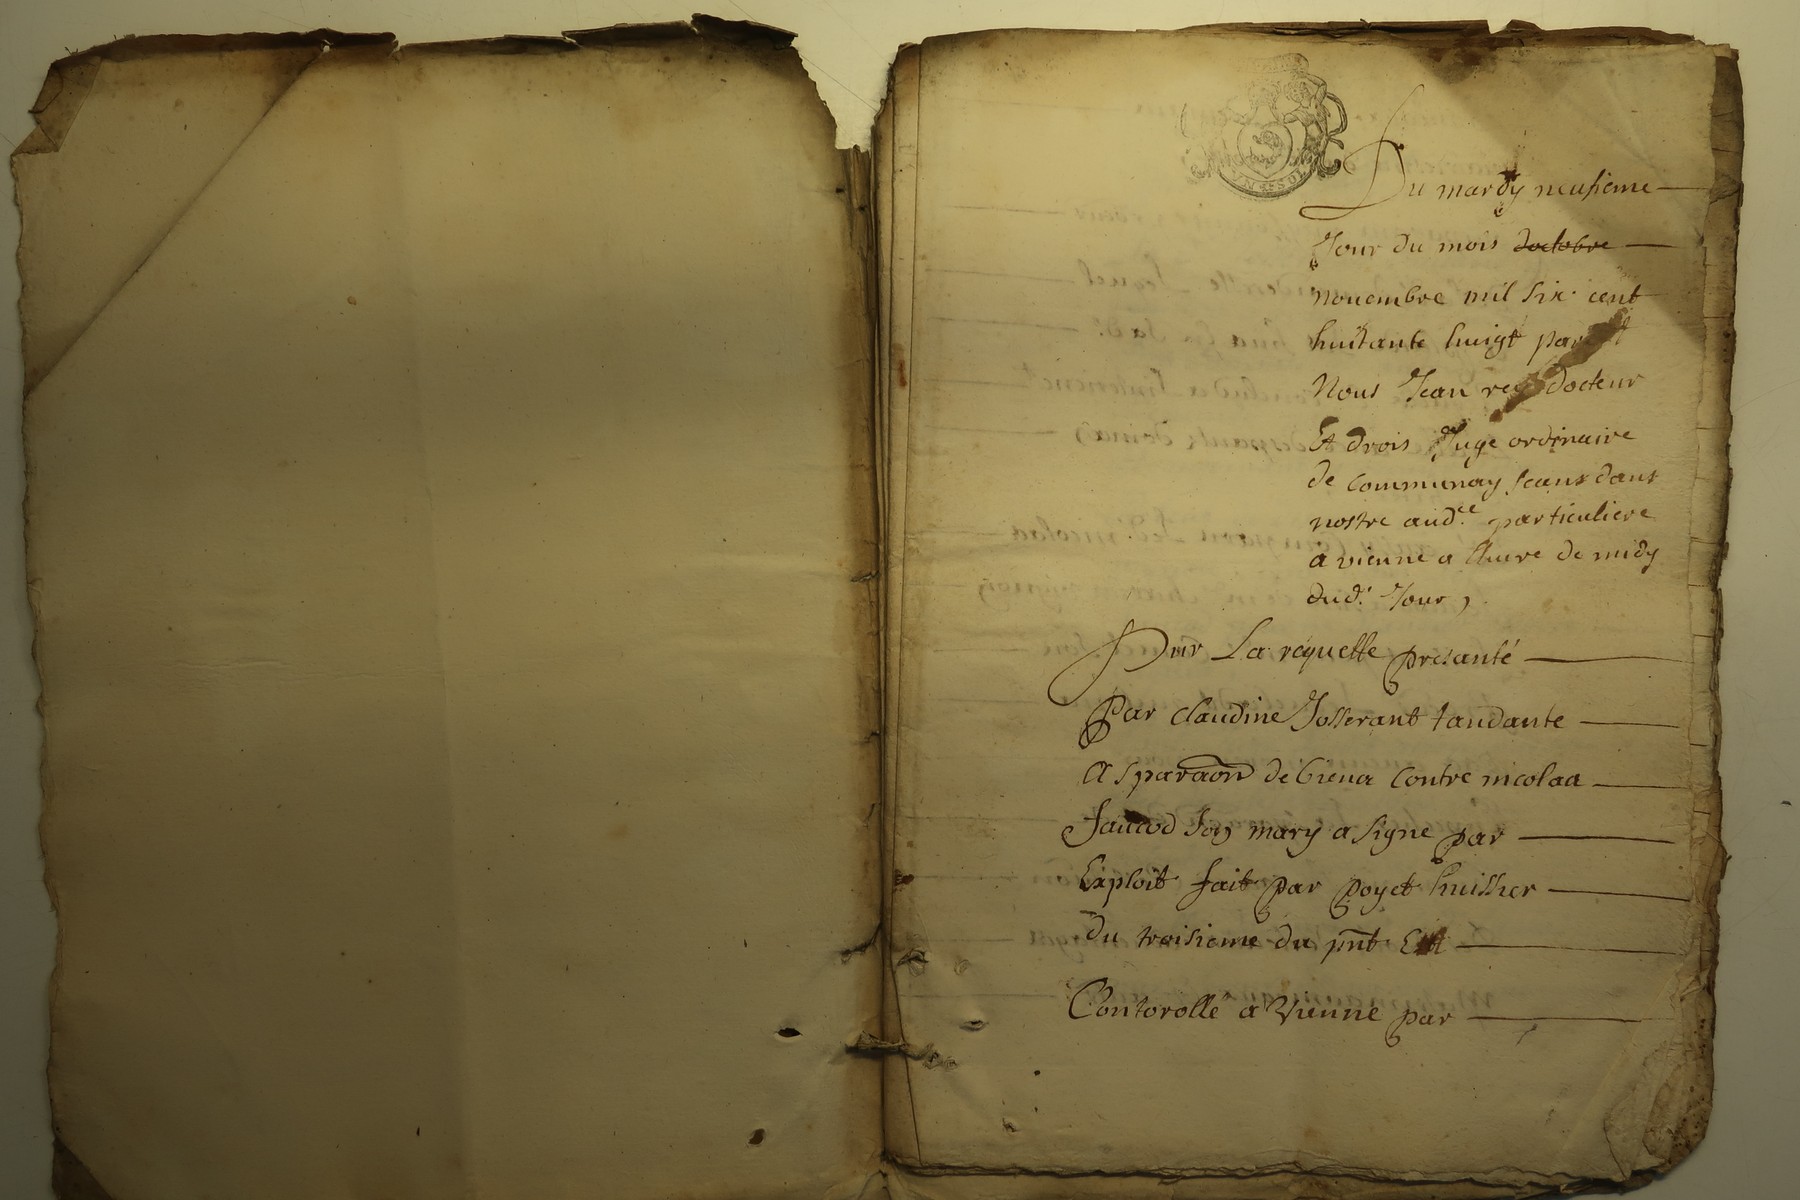 VN SOL
Du mardy neufieme
Jour du mois doctobre
nouembre mil six cent
huitante huigt par
Nous Jean rey docteur
Et drois Juge ordinaire
de Communay sceant dans
nostre aud.ce particuliere
a vienne a lhure de midy
dud.t Jour,
Sur La requette presanté
par claudine Josserant tandante
a sparaõn de biena contre nicolaa
faucod Son mary a signe par
Exploit fait par poyet huissier
du troisieme du pñt Est
Contorollé a Vienne par